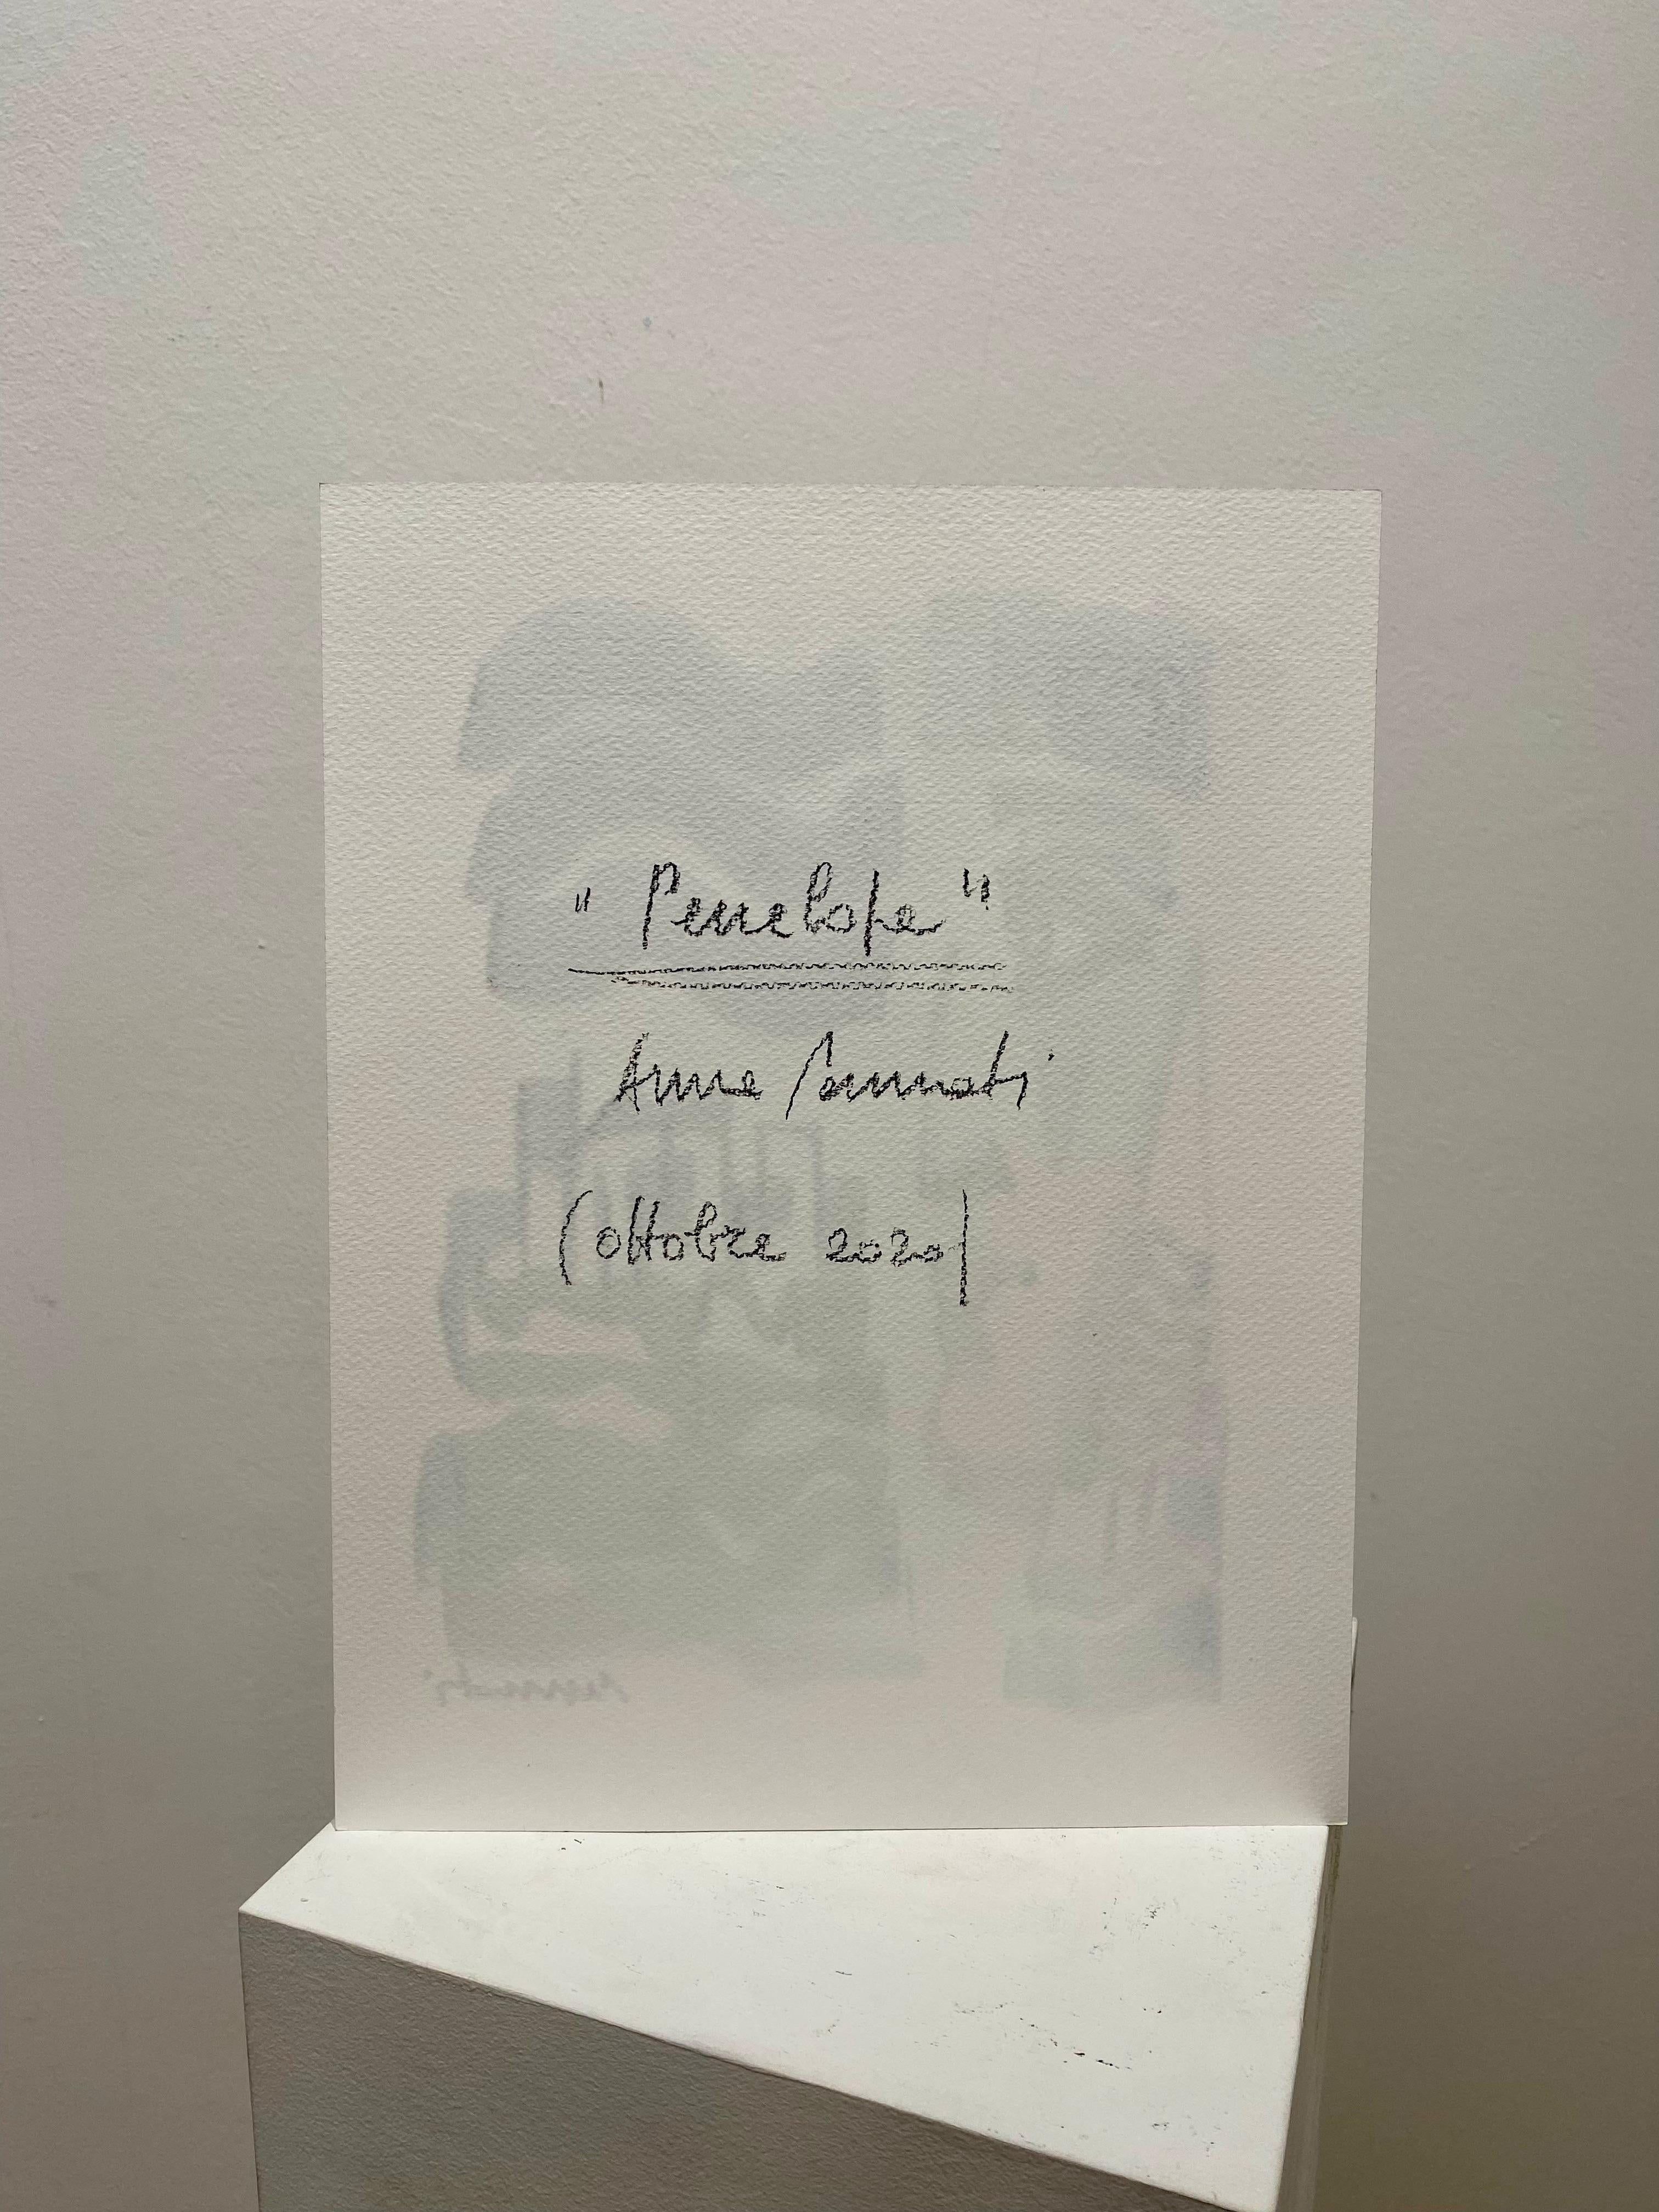 "Penelope"
Anna Cennati
(ottobre 2020)